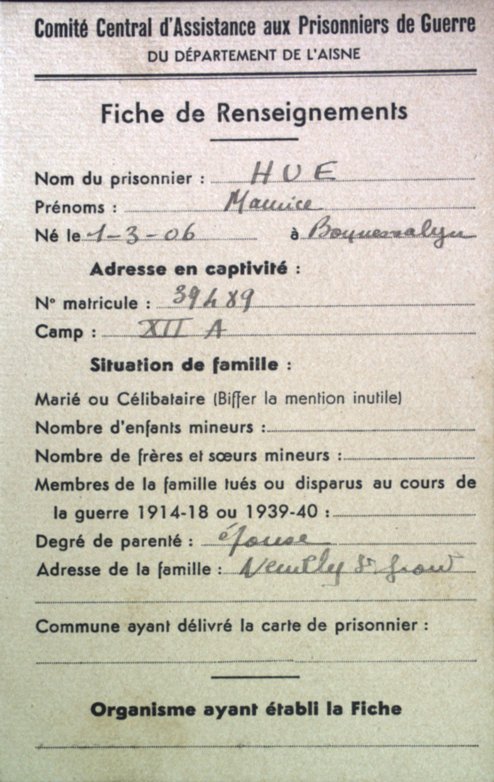 Comité Central d'Assistance aux Prisonniers de Guerre
DU DÉPARTEMENT DE L'AISNE
Fiche de Renseignements
Nom du prisonnier : HUE
Prénoms : Maurice
Né le 1-3-06 à
Adresse en captivité :
N° matricule : 39489
Camp : XII A
Situation de famille :
Marié ou Célibataire (Biffer la mention inutile)
Nombre d'enfants mineurs :
Nombre de frères et sœurs mineurs :
Membres de la famille tués ou disparus au cours de
la guerre 1914-18 ou 1939-40 :
Degré de parenté : épouse
Adresse de la famille : Neuilly St
Commune ayant délivré la carte de prisonnier :
Organisme ayant établi la Fiche